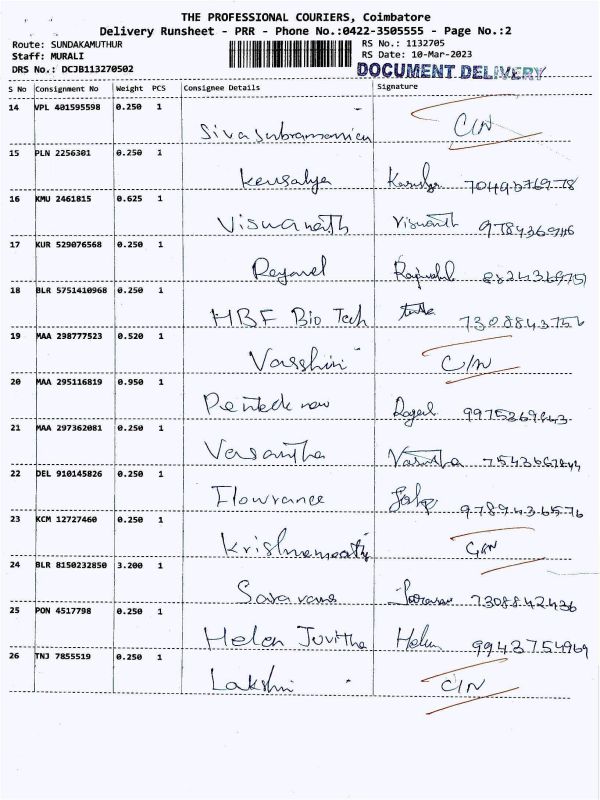 THE PROFESSIONAL COURIERS, Coimbatore
Delivery Runsheet - PRR - Phone No.:0422-3505555 - Page No.:2
Route: SUNDAKAMUTHUR RS No.: 1132705
Staff: MURALI RS Date: 10-Mar-2023
DRS No.: DCJB113270502 DOCUMENT DELIVERY
S No Consignment No Weight PCS Consignee Details Signature
14 VPL 401595598 0.250 1
Sivasubramanian C/N
15 PLN 2256301 0.250 1
Kousalya
16 KMU 2461815 0.625 1
Viswanath Viswanth
17 KUR 529076568 0.250 1
18 BLR 5751410968 0.250 1
HBF Bio Tech
19 MAA 298777523 0.520 1
Varshini C/N
20 MAA 295116819 0.950 1
21 MAA 297362081 0.250 1
Vasantha Vasantha
22 DEL 910145826 0.250 1
Flowrance
23 KCM 12727460 0.250 1
Krishnamoorthy C/N
24 BLR 8150232850 3.200 1
Saravana 7308842436
25 PON 4517798 0.250 1
Helen Juvitha Helen 9943754969
26 TNJ 7855519 0.250 1
Lakshmi C/N